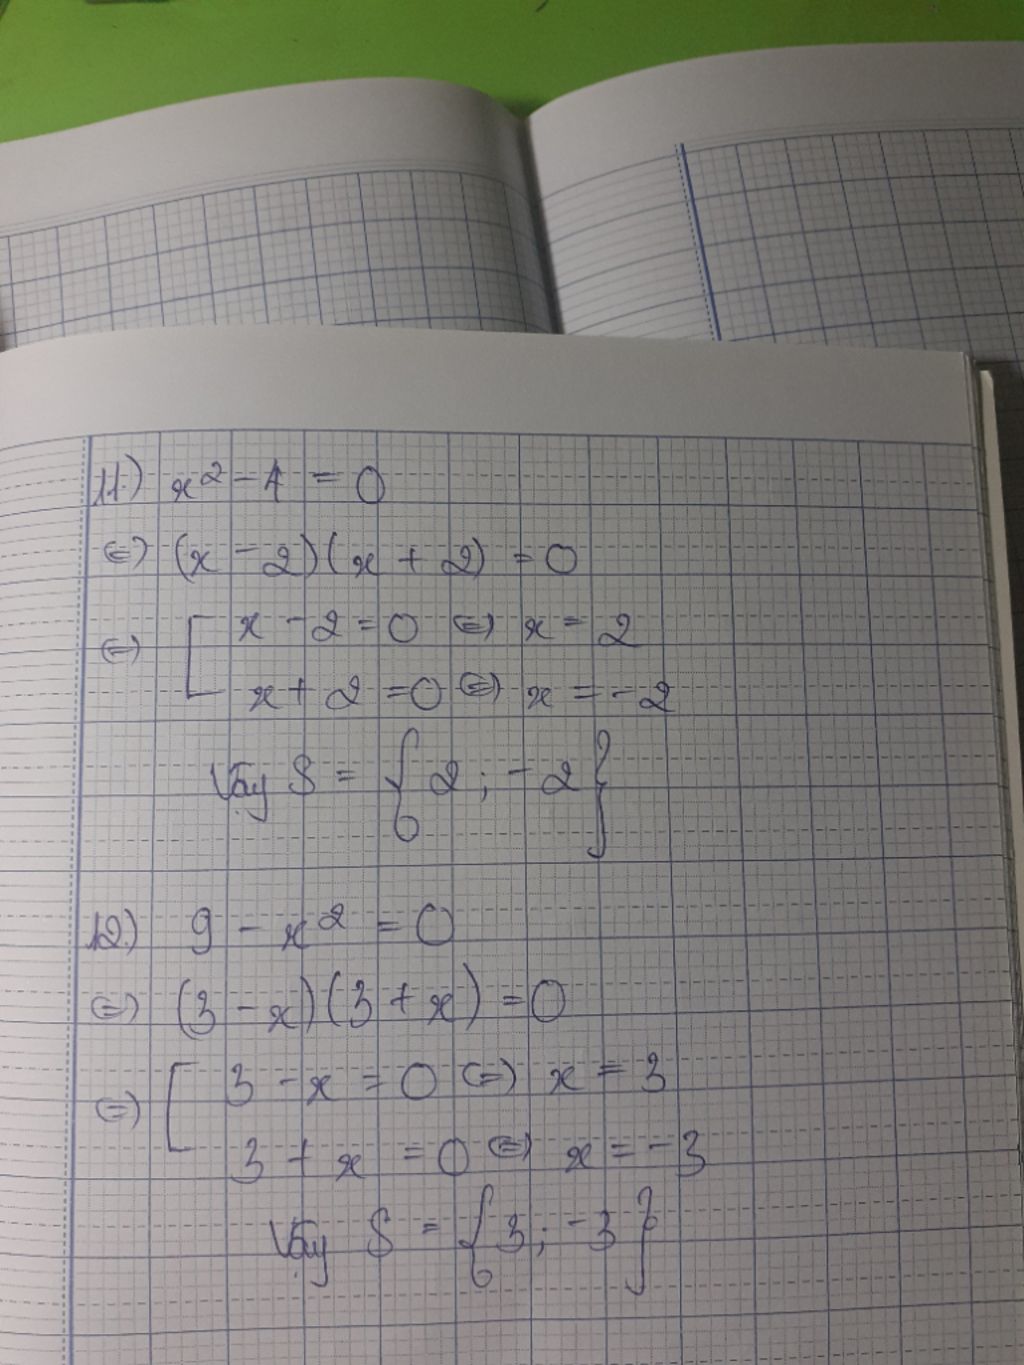 11.) x² - 4 = 0
⇔ (x - 2)(x + 2) = 0
⇔ [ x - 2 = 0 ⇔ x = 2
x + 2 = 0 ⇔ x = -2
Vậy S = { 2 ; -2 }
12.) 9 - x² = 0
⇔ (3 - x)(3 + x) = 0
⇔ [ 3 - x = 0 ⇔ x = 3
3 + x = 0 ⇔ x = -3
Vậy S = { 3 ; -3 }